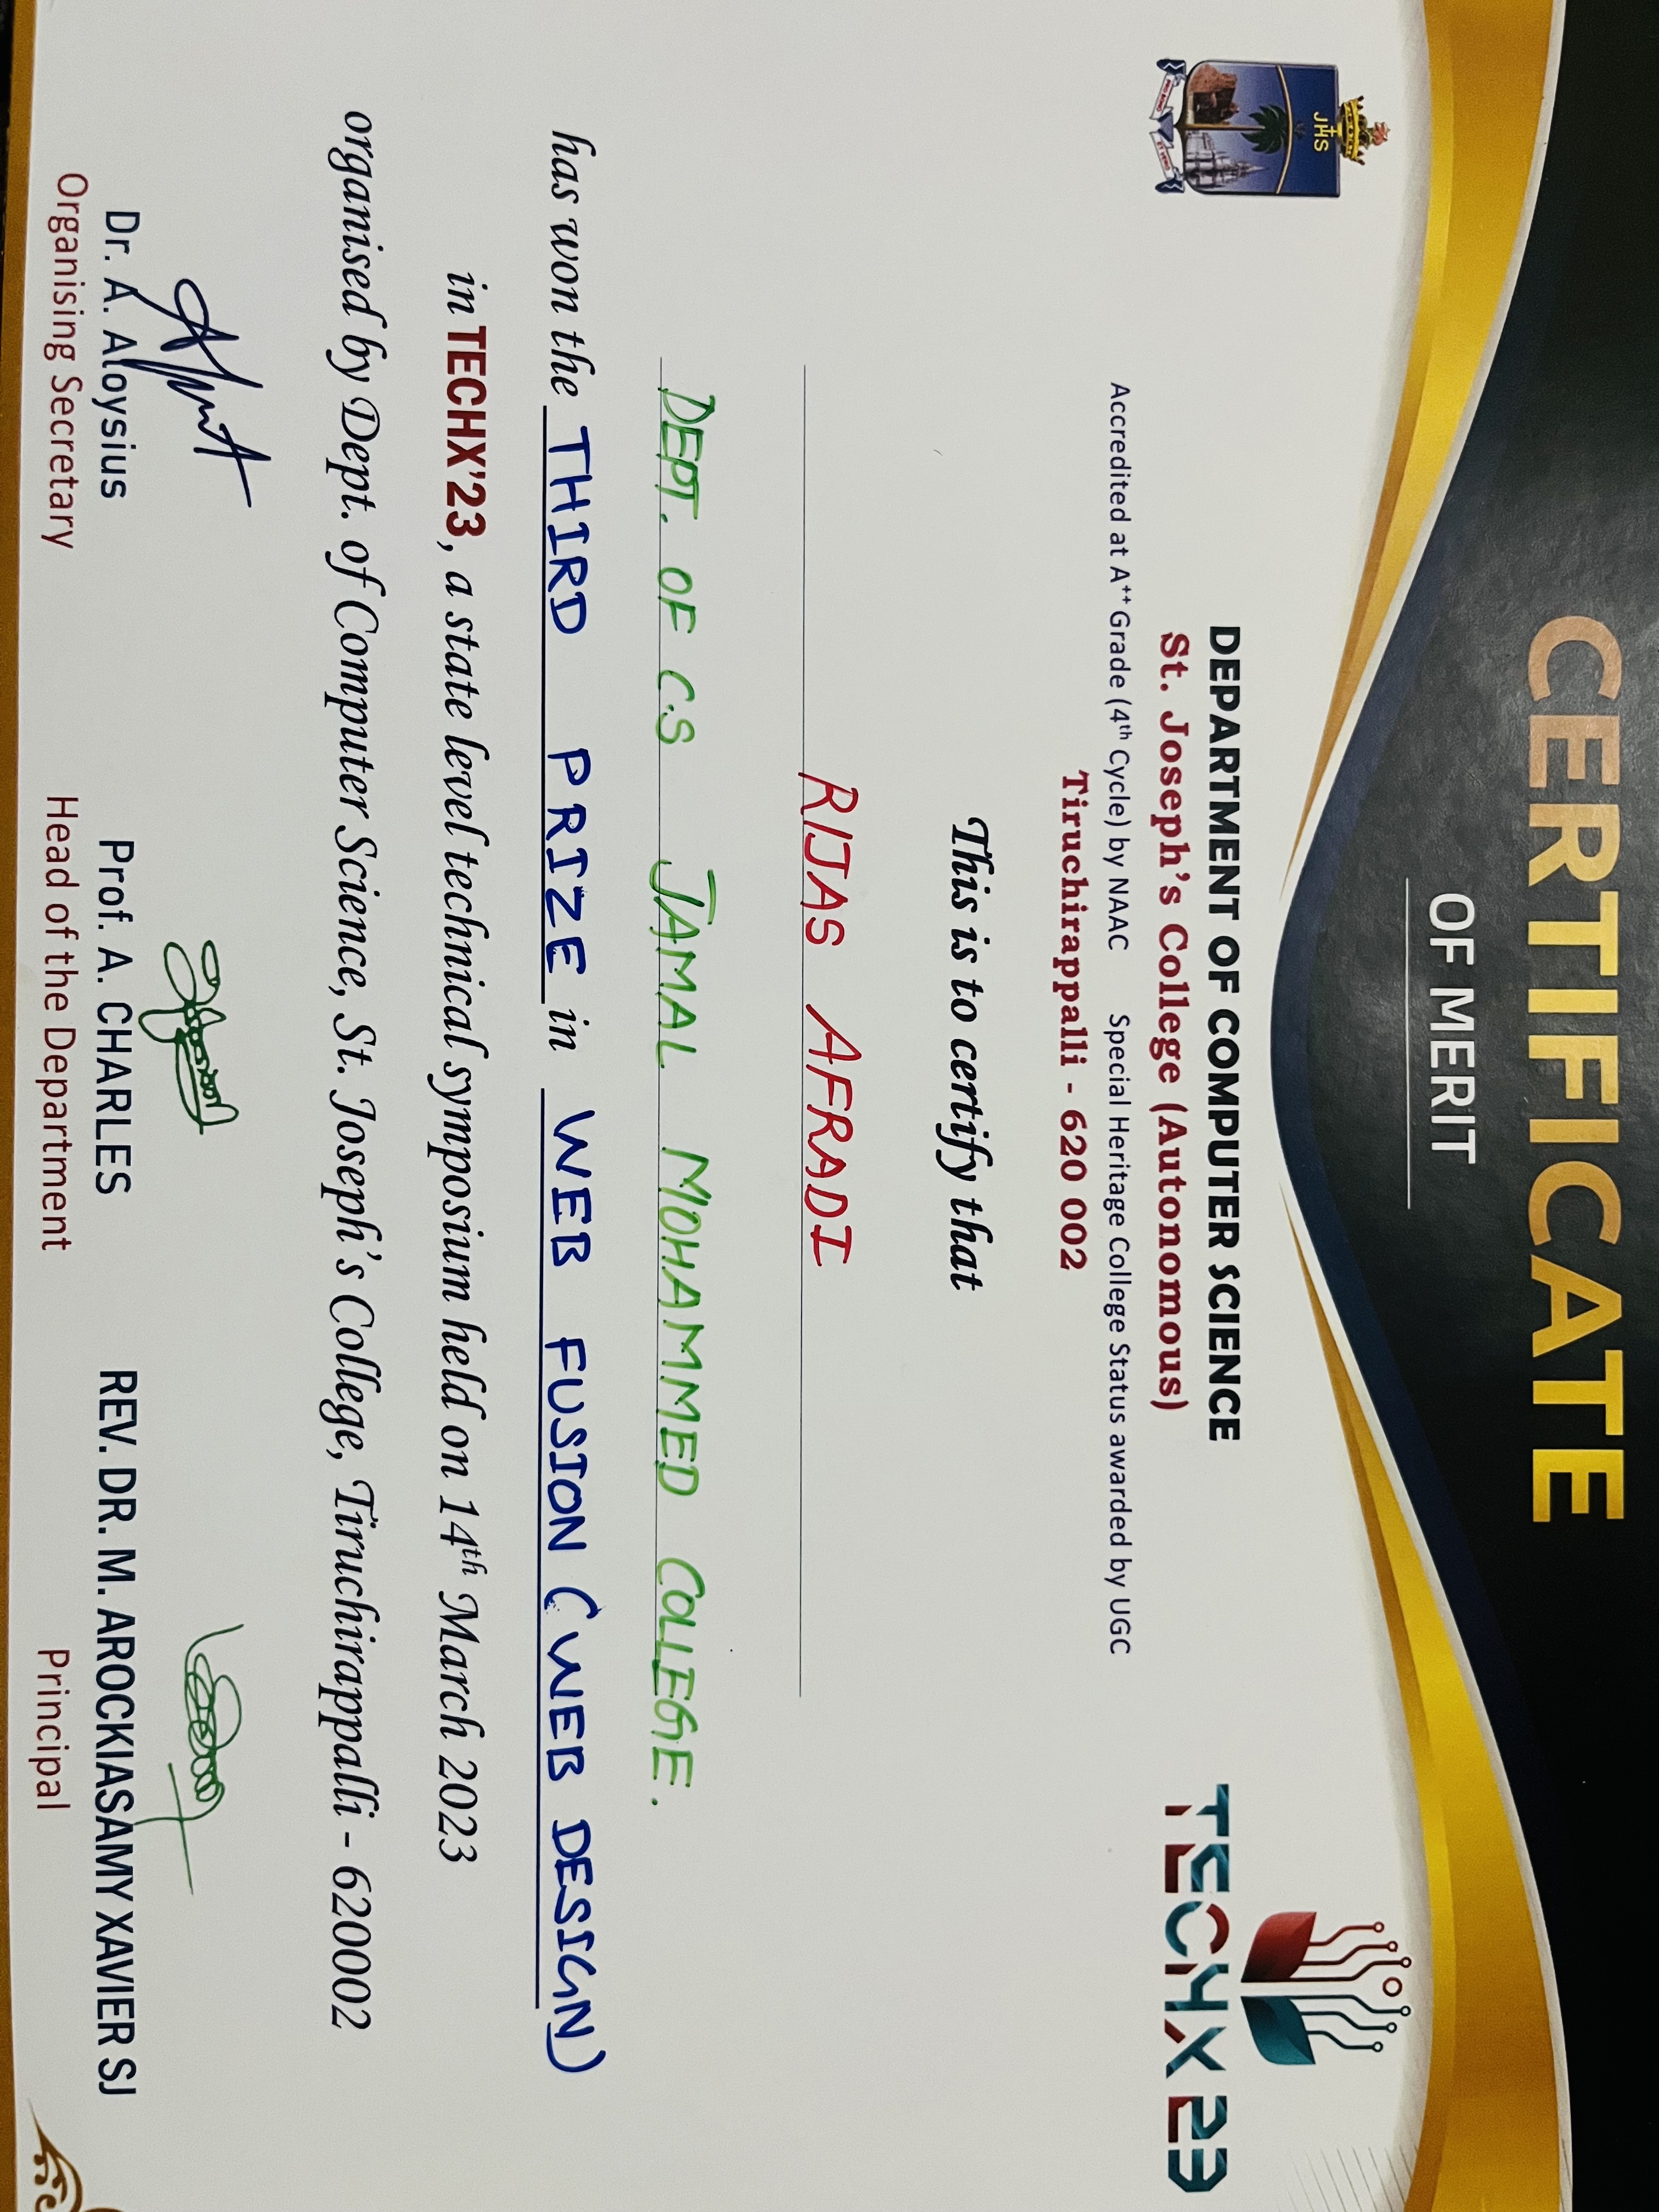 CERTIFICATE
OF MERIT
JHS
TECHX 23
DEPARTMENT OF COMPUTER SCIENCE
St. Joseph's College (Autonomous)
Accredited at A++ Grade (4th Cycle) by NAAC Special Heritage College Status awarded by UGC
Tiruchirappalli - 620 002
This is to certify that
RIJAS AFRADI
DEPT. OF C.S JAMAL MOHAMMED COLLEGE.
has won the THIRD PRIZE in WEB FUSION (WEB DESIGN)
in TECHX'23, a state level technical symposium held on 14th March 2023
organised by Dept. of Computer Science, St. Joseph's College, Tiruchirappalli - 620002
Dr. A. Aloysius Prof. A. CHARLES REV. DR. M. AROCKIASAMY XAVIER SJ
Organising Secretary Head of the Department Principal